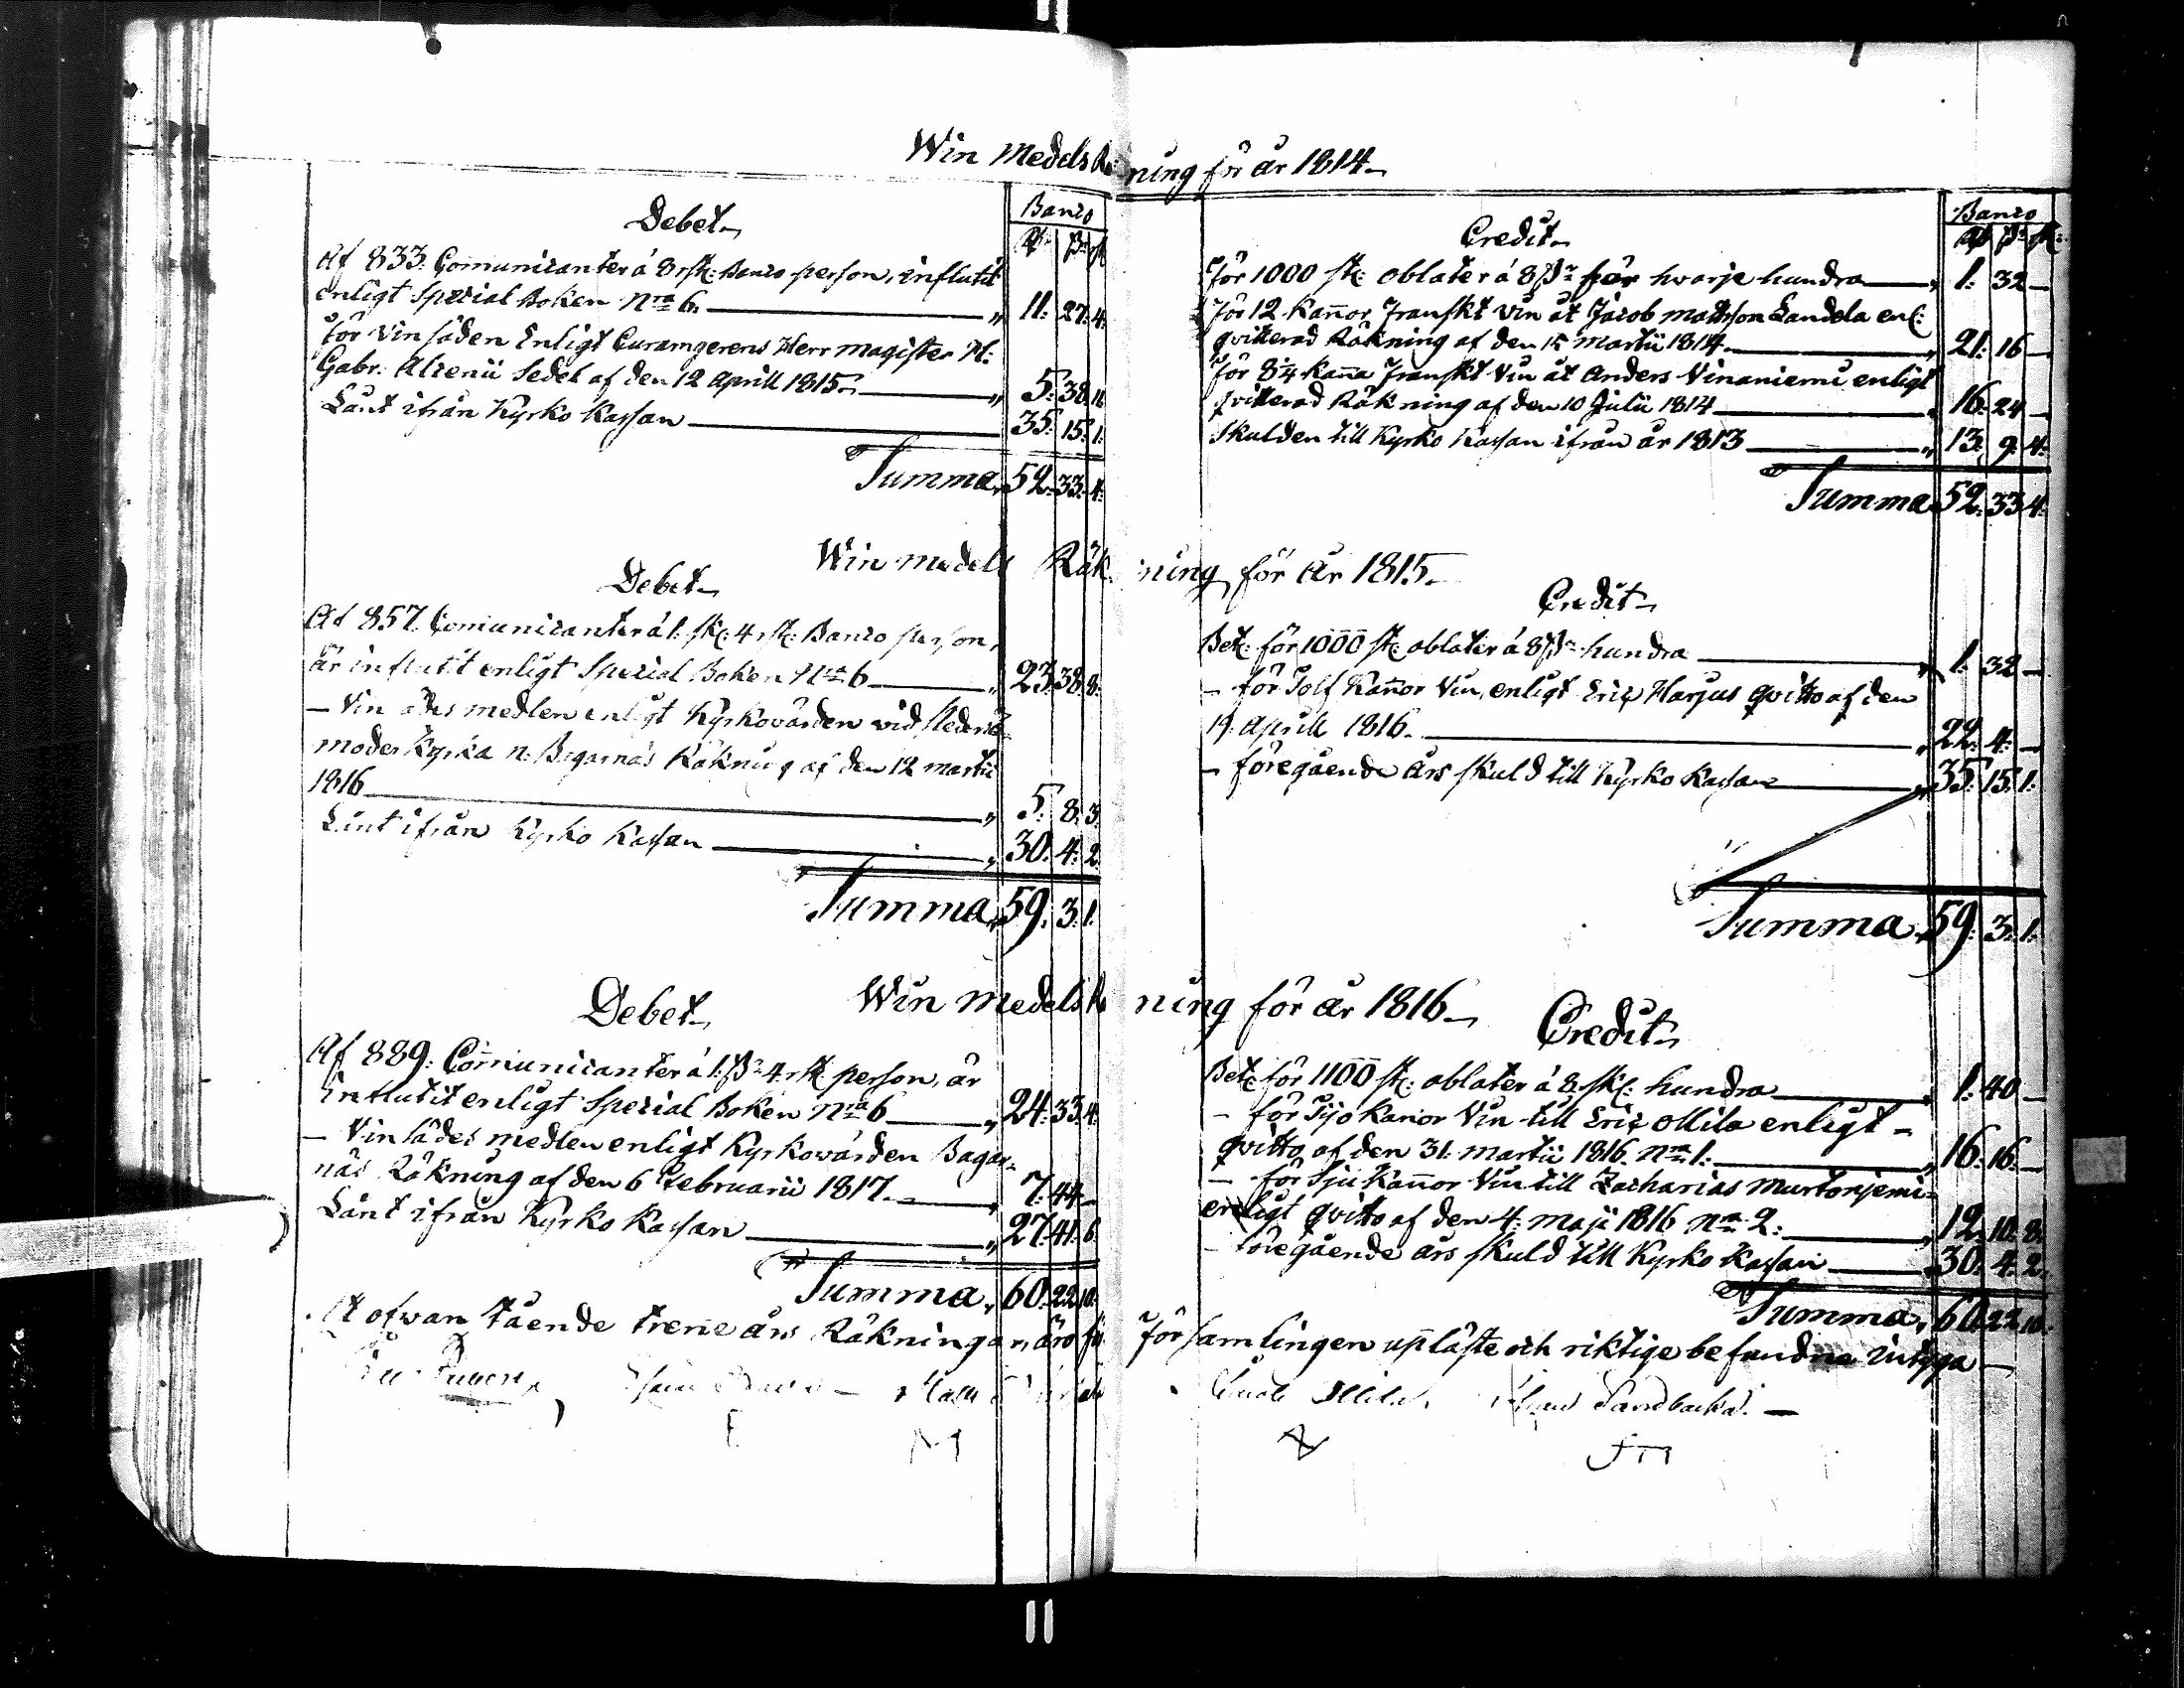 Win Medels Räkning för år 1814
Debet
Banco
Af 833. Comunicanter á 8 rst: Banco person, influtit
enligt Special Boken Nra 6. 11: 27: 4:
För Vinsäden Enligt Curamgerens Herr Magister H:
Gabr. Alcenii Sedel af den 12 Aprill 1815 5: 38: 11
Lånt ifrån Kyrko Kassan 35: 15: 1:
Summa 52: 33: 4:
Credit
Banco
För 1000 st: oblater á 8 ß för hvarje hundra 1: 32
För 12 Kannor Franskt Vin åt Jacob Mattsson Landela enl:
qvitterad Räkning af den 15 Martii 1814 21: 16
För 8 1/4 kanna Franskt Vin åt Anders Vinaniemi enligt
qvitterad Räkning af den 10 Julii 1814 16: 24
Skulden till Kyrko Kassan ifrån år 1813 13: 9: 4:
Summa 52: 33: 4:
Win medels Räkning för år 1815
Debet
Af 857 Comunicanter á 1. sk: 4 rst: Banco person,
är influtit enligt Special Boken Nra 6 23: 38: 8:
— Vin sädes medlen enligt Kyrkovärden vid Nederv:
moder kyrka n: Bagarnäs Räkning af den 12 Martii
1816 5: 8: 3:
Lånt ifrån Kyrko Kassan 30: 4: 2
Summa 59: 3: 1:
Credit
Bet: för 1000 st: oblater á 8 ß hundra 1: 32
— för Tolf Kannor Vin, enligt Eric Harjus qvitto af den
19. Aprill 1816. 22: 4:
— föregående års skuld till Kyrko Kassan 35: 15: 1:
Summa 59: 3: 1:
Win medels Räkning för år 1816
Debet
Af 889: Communicanter á 1: ß 4 rst: person, är
influtit enligt Special Boken Nra 6 24: 33: 4:
— Vin sädes medlen enligt Kyrkovärden Bagar-
näs Räkning af den 6 Februarii 1817 7: 44
Lånt ifrån Kyrko Kassan 27: 41: 6
Summa 60: 22: 10:
Credit
Bet: för 1100 st: oblater á 8 sk: hundra 1: 40
— för Tijo Kanor Vin till Eric Ollila enligt
qvitto af den 31. Martii 1816 Nra 1: 16: 16
— för Sju Kannor Vin till Zacharias Murtoniemi
enligt qvitto af den 4: Maji 1816 Nra 2: 12: 10: 8:
— föregående års skuld till Kyrko Kassan 30: 4: 2:
Summa 60: 22: 10:
At ofvan stående trenne års Räkningar, äro för Församlingen upläste och riktige befundne intyga
Ollila Sandbacka
11